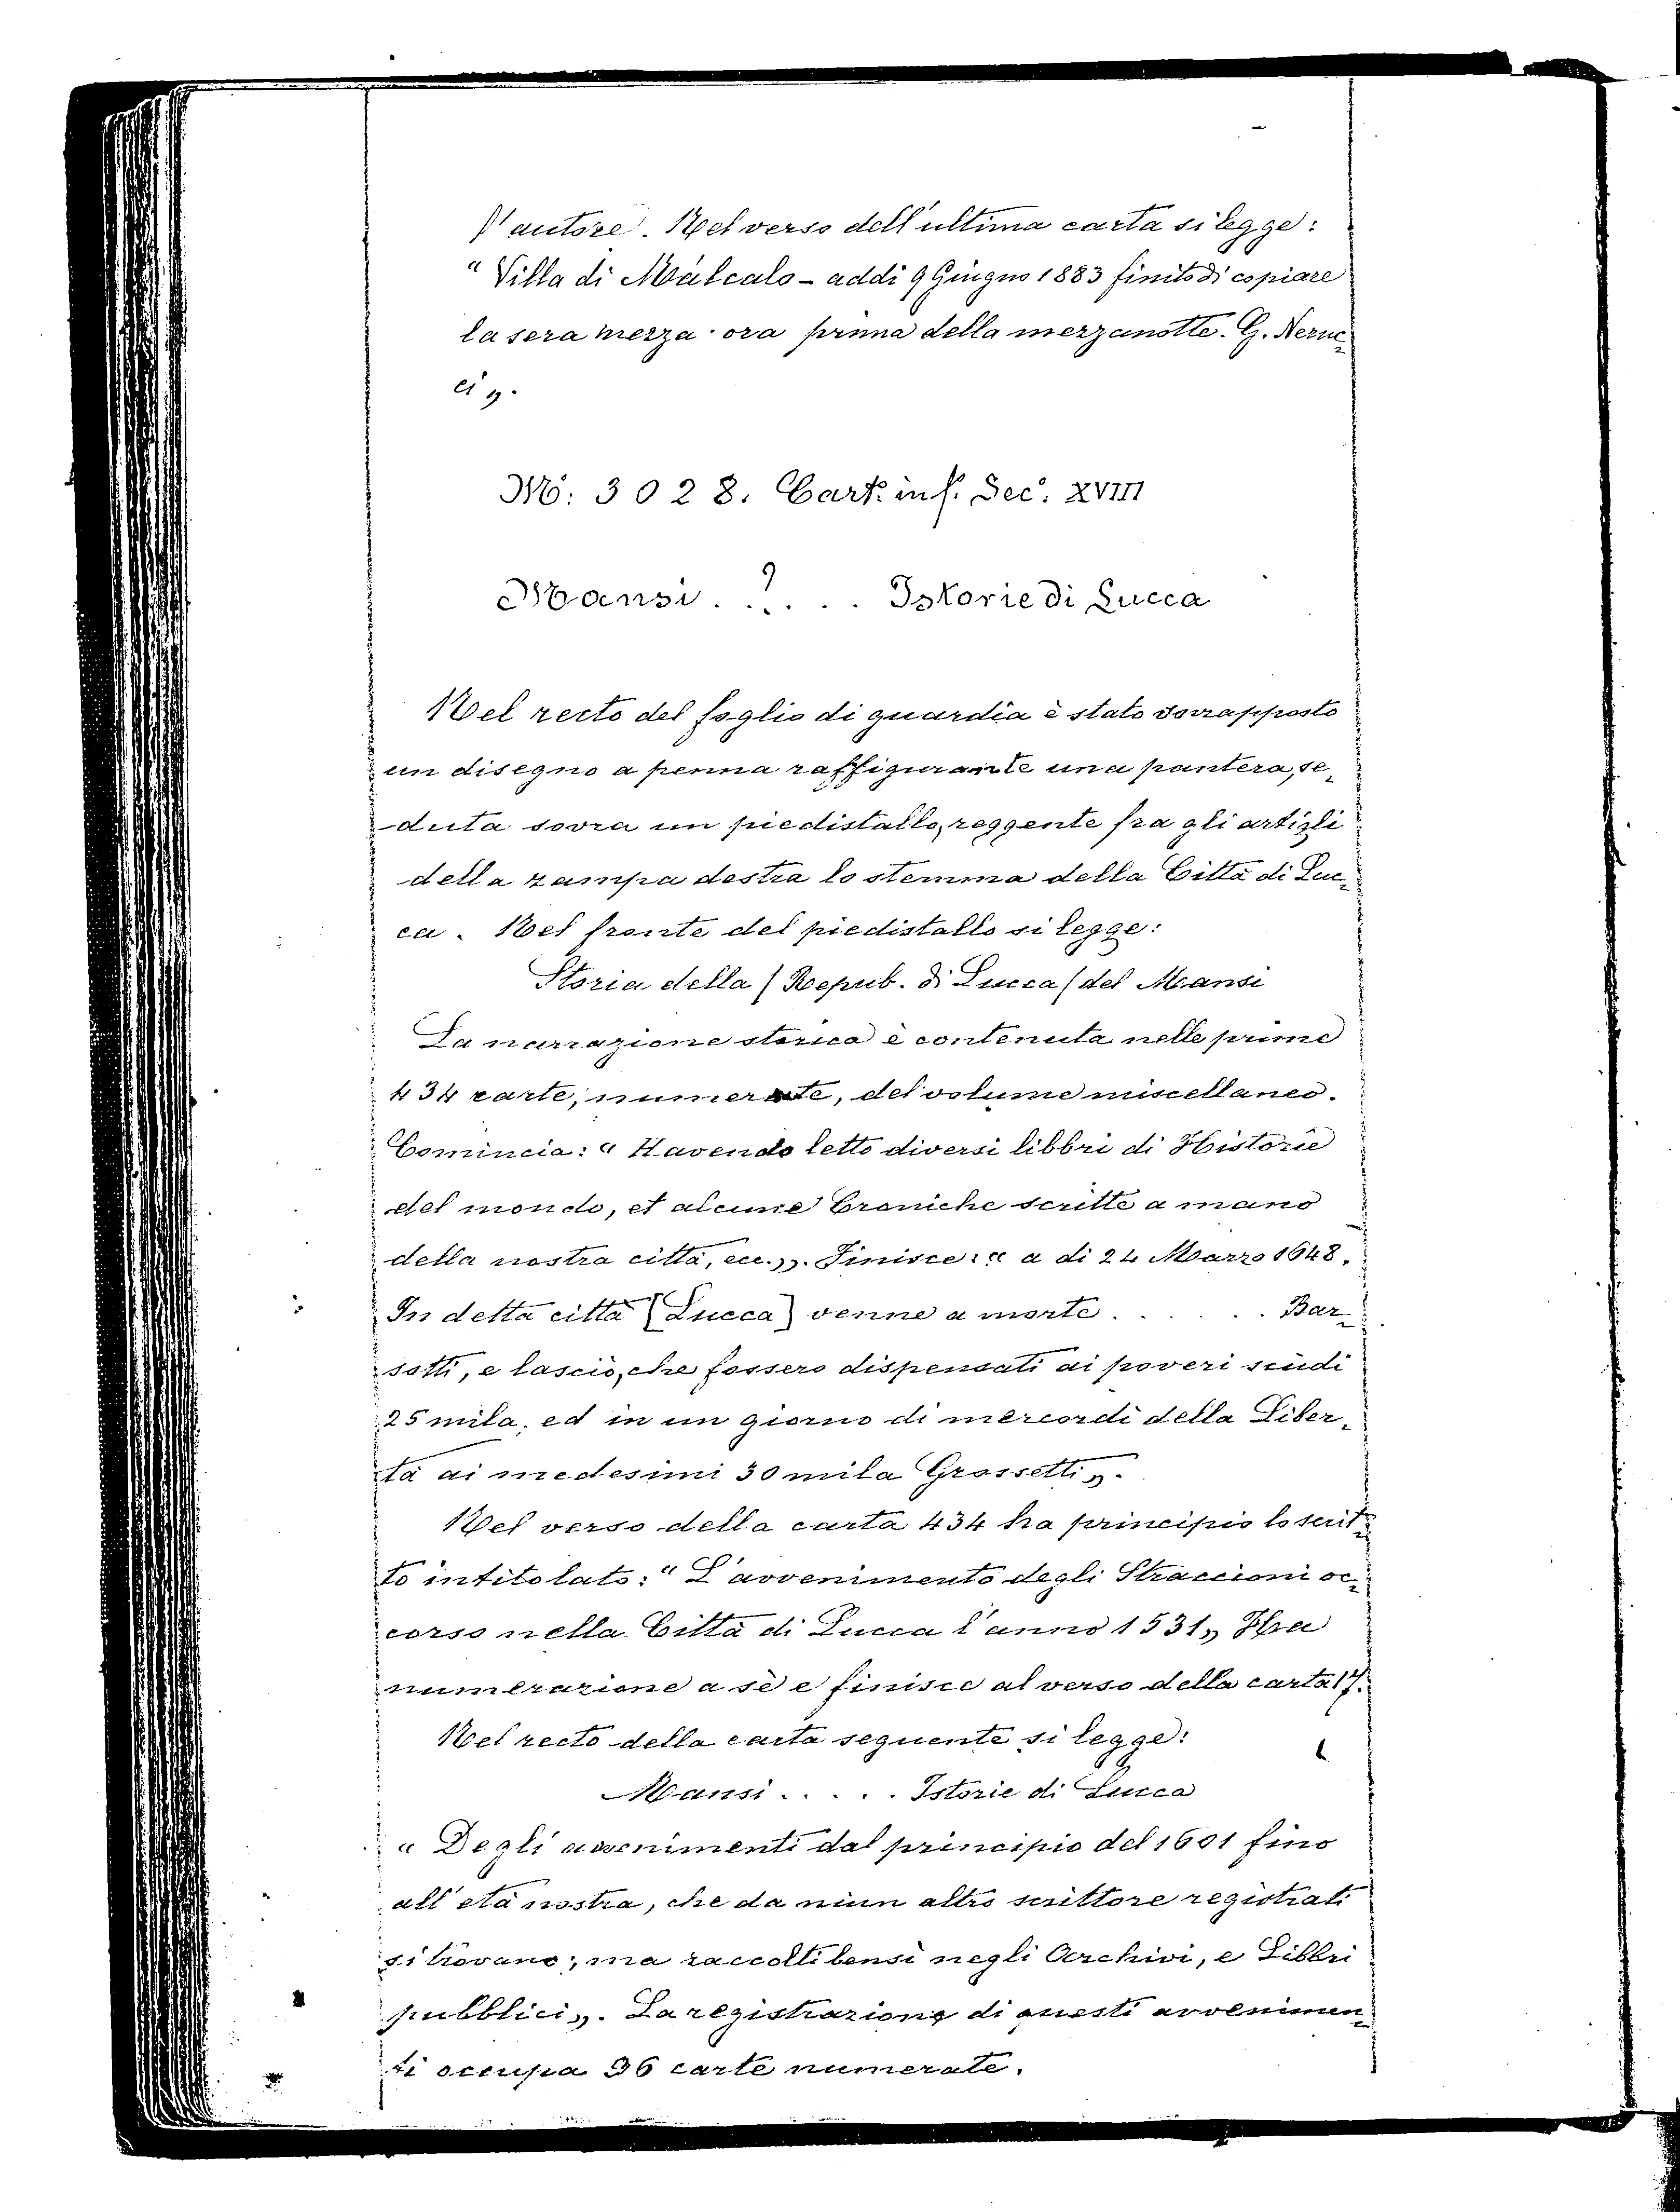 l'autore. Nel verso dell'ultima carta si legge:
"Villa di Malcalo - addi 9 Giugno 1883 finito di copiare
la sera mezza ora prima della mezzanotte. G. Neruc=
ci„.
N.: 3028. Cart. in f. Sec. XVIII
Mansi . ? . . . Istorie di Lucca
Nel recto del foglio di guardia è stato sovrapposto
un disegno a penna raffigurante una pantera, se=
duta sovra un piedistallo, reggente fra gli artigli
della zampa destra lo stemma della Città di Luc=
ca. Nel fronte del piedistallo si legge:
Storia della / Repub. di Lucca / del Mansi
La narrazione storica è contenuta nelle prime
434 carte, numerate, del volume miscellaneo.
Comincia: "Havendo letto diversi libbri di Historie
del mondo, et alcune Croniche scritte a mano
della nostra città, ecc.„. Finisce: "a di 24 Marzo 1648.
In detta città (Lucca) venne a morte . . . . . . Bar=
sotti, e lasciò, che fossero dispensati ai poveri scudi
25 mila, ed in un giorno di mercordi della Liber=
tà ai medesimi 30 mila Grossetti„.
Nel verso della carta 434 ha principio lo scrit=
to intitolato: "L'avvenimento degli Straccioni oc=
corso nella Città di Lucca l'anno 1531„ Ha
numerazione a sè e finisce al verso della carta 17.
Nel recto della carta seguente si legge:
Mansi . . . . . Istorie di Lucca
"Degli avvenimenti dal principio del 1601 fino
all'età nostra, che da niun altro scrittore registrati
si trovano; ma raccolti bensì negli Archivi, e Libbri
pubblici„. La registrazione di questi avvenimen=
ti occupa 36 carte numerate.